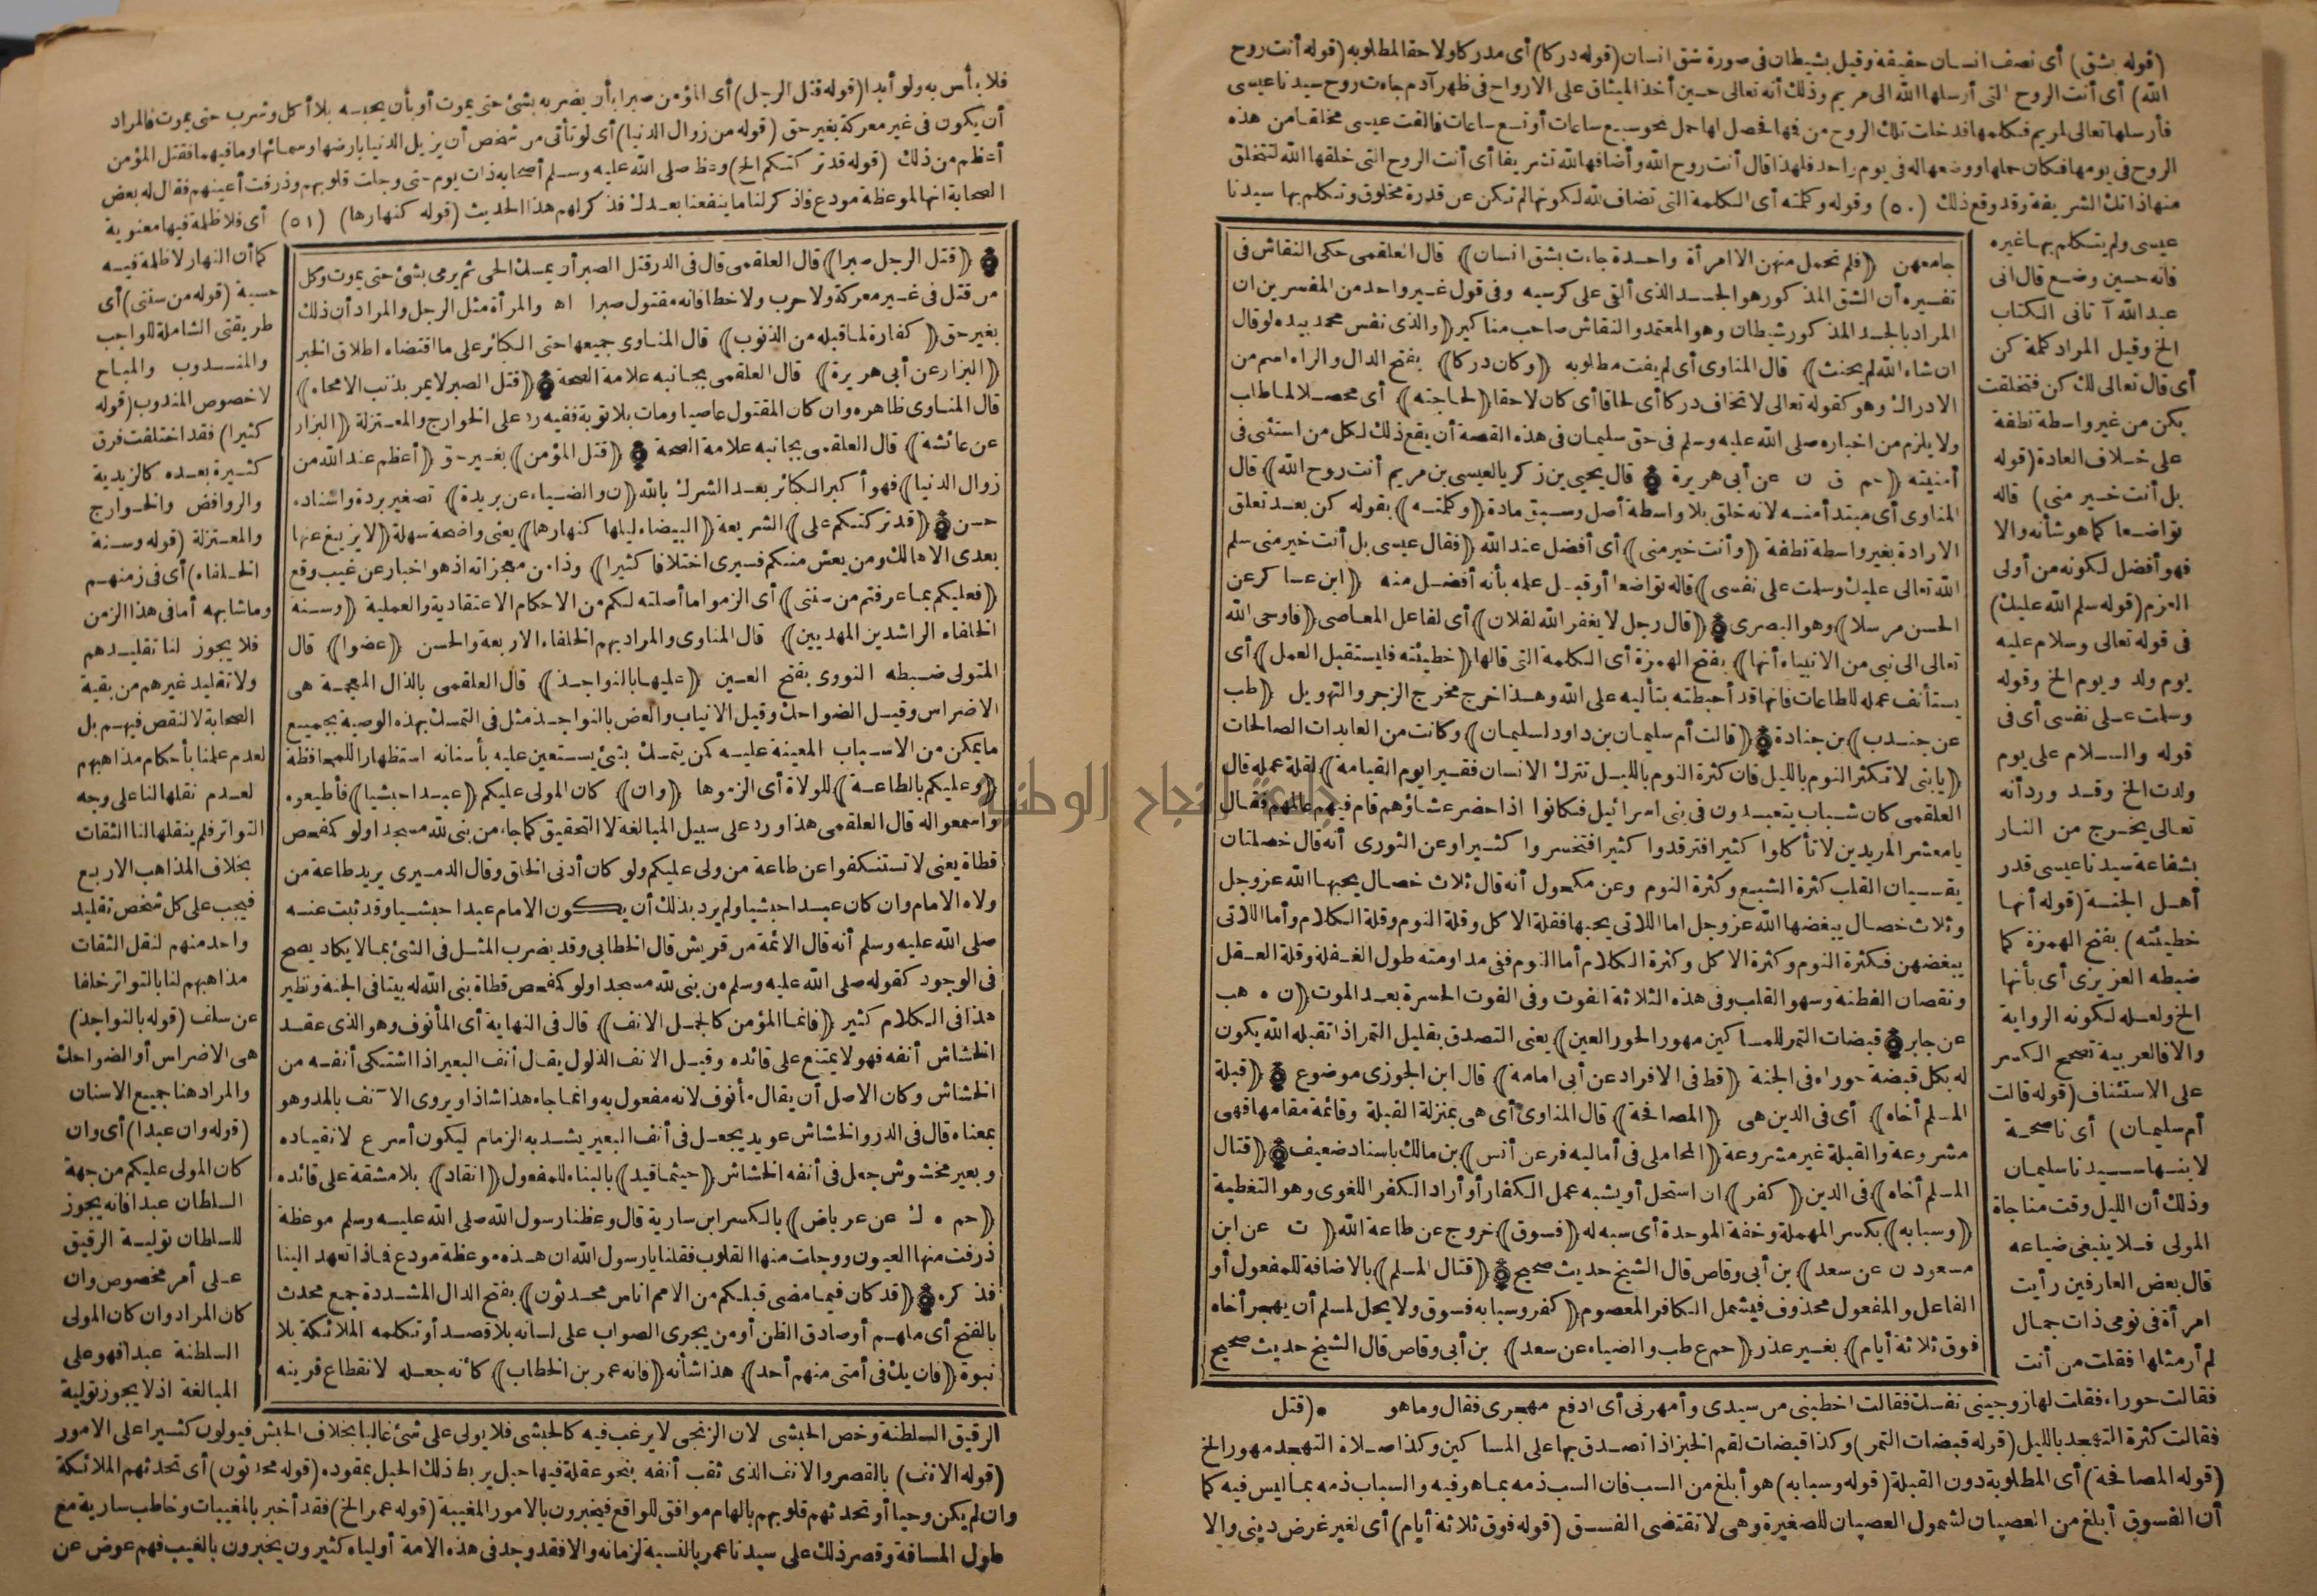 (قوله بشق) أى نصف انسان حقيقة وقيل بشيطان فى صورة شق انسان (قوله دركا) أى مدركا ولاحقا لمطلوبه (قوله أنت روح
الله) أى أنت الروح التى أرسلها الله الى مريم وذلك أنه تعالى حين أخذ الميثاق على الارواح فى ظهر آدم جاءت روح سيدنا عيسى
فأرسلها تعالى لمريم فكلمها فدخلت تلك الروح من فيها فحصل لها حمل نحو سبع ساعات أو تسع ساعات فالقت عيسى مخلقا من هذه
الروح فى يومها فكان حملها ووضعها له فى يوم واحد فلهذا قال أنت روح الله وأضافها لله تشريفا أى أنت الروح التى خلقها الله لتتخلق
منها ذاتك الشريفة وقد وقع ذلك (٥٠) وقوله وكلمته أى الكلمة التى تضاف لله لكونها لم تكن عن قدرة مخلوق وتكلم بها سيدنا
عيسى ولم يتكلم بها غيره
فانه حين وضع قال انى
عبد الله آتانى الكتاب
الخ وقيل المراد كلمة كن
أى قال تعالى لك كن فتخلقت
بكن من غير واسطة نطفة
على خلاف العادة (قوله
بل أنت خير منى) قاله
تواضعا كما هو شأنه والا
فهو أفضل لكونه من أولى
العزم (قوله سلم الله عليك)
فى قوله تعالى وسلام عليه
يوم ولد ويوم الخ وقوله
وسلمت على نفسى أى فى
قوله والسلام على يوم
ولدت الخ وقد ورد أنه
تعالى يخرج من النار
بشفاعة سيدنا عيسى قدر
أهل الجنة (قوله أنها
خطيئته) بفتح الهمزة كما
ضبطه العزيزى أى بأنها
الخ ولعله لكونه الرواية
والا فالعربية تصحح الكسر
على الاستئناف (قوله قالت
أم سليمان) أى ناصحة
لابنها سيدنا سليمان
وذلك أن الليل وقت مناجاة
المولى فلا ينبغى ضياعه
قال بعض العارفين رأيت
امرأة فى نومى ذات جمال
لم أر مثلها فقلت من أنت
جامعهن ﴿فلم تحمل منهن الا امرأة واحدة جاءت بشق انسان﴾ قال العلقمى حكى النقاش فى
تفسيره أن الشق المذكور هو الجسد الذى ألقى على كرسيه وفى قول غير واحد من المفسرين ان
المراد بالجسد المذكور شيطان وهو المعتمد والنقاش صاحب مناكير ﴿والذى نفس محمد بيده لو قال
ان شاء الله لم يحنث﴾ قال المناوى أى لم يفت مطلوبه ﴿وكان دركا﴾ بفتح الدال والراء اسم من
الادراك وهو كقوله تعالى لا تخاف دركا أى لحاقا أى كان لاحقا ﴿لحاجته﴾ أى محصلا لما طاب
ولا يلزم من اخباره صلى الله عليه وسلم فى حق سليمان فى هذه القصة أن يقع ذلك لكل من استثنى فى
أمنيته ﴿حم ق ن عن أبى هريرة ۞ قال يحيى بن زكريا لعيسى بن مريم أنت روح الله﴾ قال
المناوى أى مبتدأ منه لانه خلق بلا واسطة أصل وسبق مادة ﴿وكلمته﴾ بقوله كن بعد تعلق
الارادة بغير واسطة نطفة ﴿وأنت خير منى﴾ أى أفضل عند الله ﴿فقال عيسى بل أنت خير منى سلم
الله تعالى عليك وسلمت على نفسى﴾ قاله تواضعا أو قبل علمه بأنه أفضل منه ﴿ابن عساكر عن
الحسن مرسلا﴾ وهو البصرى ۞ ﴿قال رجل لا يغفر الله لفلان﴾ أى لفاعل المعاصى ﴿فاوحى الله
تعالى الى نبى من الانبياء أنها﴾ بفتح الهمزة أى الكلمة التى قالها ﴿خطيئته فليستقبل العمل﴾ أى
يستأنف عمله للطاعات فانها قد أحبطته بتأليه على الله وهذا خرج مخرج الزجر والتهويل ﴿طب
عن جندب﴾ بن جنادة ۞ ﴿قالت أم سليمان بن داود لسليمان﴾ وكانت من العابدات الصالحات
﴿يا بنى لا تكثر النوم بالليل فان كثرة النوم بالليل تترك الانسان فقيرا يوم القيامة﴾ لقلة عمله قال
العلقمى كان شباب يتعبدون فى بنى اسرائيل فكانوا اذا حضر عشاؤهم قام فيهم عالمهم فقال
يا معشر المريدين لا تأكلوا كثيرا فترقدوا كثيرا فتخسروا كثيرا وعن الثورى أنه قال خصلتان
يقسيان القلب كثرة الشبع وكثرة النوم وعن مكحول أنه قال ثلاث خصال يحبها الله عز وجل
وثلاث خصال يبغضها الله عز وجل اما اللاتى يحبها فقلة الاكل وقلة النوم وقلة الكلام وأما اللاتى
يبغضهن فكثرة النوم وكثرة الاكل وكثرة الكلام أما النوم ففى مداومته طول الغفلة وقلة العقل
ونقصان الفطنة وسهو القلب وفى هذه الثلاثة الفوت وفى الفوت الحسرة بعد الموت ﴿ن ه هب
عن جابر ۞ قبضات التمر للمساكين مهور الحور العين﴾ يعنى التصدق بقليل التمر اذا تقبله الله يكون
له بكل قبضة حوراء فى الجنة ﴿قط فى الافراد عن أبى امامة﴾ قال ابن الجوزى موضوع ۞ ﴿قبلة
المسلم أخاه﴾ أى فى الدين هى ﴿المصافحة﴾ قال المناوى أى هى بمنزلة القبلة وقائمة مقامها فهى
مشروعة والقبلة غير مشروعة ﴿المحاملى فى أماليه فر عن أنس﴾ بن مالك باسناد ضعيف ۞ ﴿قتال
المسلم أخاه﴾ فى الدين ﴿كفر﴾ ان استحل أو يشبه عمل الكفار أو أراد الكفر اللغوى وهو التغطية
﴿وسبابه﴾ بكسر المهملة وخفة الموحدة أى سبه له ﴿فسوق﴾ خروج عن طاعة الله ﴿ت عن ابن
مسعود ن عن سعد﴾ بن أبى وقاص قال الشيخ حديث صحيح ۞ ﴿قتال المسلم﴾ بالاضافة للمفعول أو
الفاعل والمفعول محذوف فيشمل الكافر المعصوم ﴿كفر وسبابه فسوق ولا يحل لمسلم أن يهجر أخاه
فوق ثلاثة أيام﴾ بغير عذر ﴿حم ع طب والضياء عن سعد﴾ بن أبى وقاص قال الشيخ حديث صحيح
فقالت حوراء فقلت لها زوجينى نفسك فقالت اخطبنى من سيدى وأمهرنى أى ادفع مهرى فقال وما هو • (قتل
فقالت كثرة التهجد بالليل (قوله قبضات التمر) وكذا قبضات لقم الخبز اذا تصدق بها على المساكين وكذا صلاة التهجد مهور الخ
(قوله المصافحة) أى المطلوبة دون القبلة (قوله وسبابه) هو أبلغ من السب فان السب ذمه بما هو فيه والسباب ذمه بما ليس فيه كما
أن الفسوق أبلغ من العصيان لشمول العصيان للصغيرة وهى لا تقتضى الفسق (قوله فوق ثلاثة أيام) أى لغير غرض دينى والا
فلا بأس به ولو أبدا (قوله قتل الرجل) أى المؤمن صبرا بأن يضربه بشئ حتى يموت أو بأن يحبسه بلا أكل وشرب حتى يموت فالمراد
أن يكون فى غير معركة بغير حق (قوله من زوال الدنيا) أى لو تأتى من شخص أن يزيل الدنيا بارضها وسمائها وما فيهما فقتل المؤمن
أعظم من ذلك (قوله قد تركتكم الخ) وعظ صلى الله عليه وسلم أصحابه ذات يوم حتى وجلت قلوبهم وذرفت أعينهم فقال له بعض
الصحابة انها لموعظة مودع فاذكر لنا ما ينفعنا بعدك فذكر لهم هذا الحديث (قوله كنهارها) (٥١) أى فلا ظلمة فيها معنوية
كما أن النهار لا ظلمة فيه
حسية (قوله من سنتى) أى
طريقتى الشاملة للواجب
والمندوب والمباح
لا خصوص المندوب (قوله
كثيرا) فقد اختلفت فرق
كثيرة بعده كالزيدية
والروافض والخوارج
والمعتزلة (قوله وسنة
الخلفاء) أى فى زمنهم
وما شابهه أما فى هذا الزمن
فلا يجوز لنا تقليدهم
ولا تقليد غيرهم من بقية
الصحابة لا لنقص فيهم بل
لعدم علمنا بأحكام مذاهبهم
لعدم نقلها لنا على وجه
التواتر فلم ينقلها لنا الثقات
بخلاف المذاهب الاربع
فيجب على كل شخص تقليد
واحد منهم لنقل الثقات
مذاهبهم لنا بالتواتر خلفا
عن سلف (قوله بالنواجذ)
هى الاضراس أو الضواحك
والمراد هنا جميع الاسنان
(قوله وان عبدا) أى وان
كان المولى عليكم من جهة
السلطان عبدا فانه يجوز
للسلطان تولية الرقيق
على أمر مخصوص وان
كان المراد وان كان المولى
السلطنة عبدا فهو على
المبالغة اذ لا يجوز تولية
۞ ﴿قتل الرجل صبرا﴾ قال العلقمى قال فى الدر قتل الصبر أن يمسك الحى ثم يرمى بشئ حتى يموت وكل
من قتل فى غير معركة ولا حرب ولا خطا فانه مقتول صبرا اه والمرأة مثل الرجل والمراد أن ذلك
بغير حق ﴿كفارة لما قبله من الذنوب﴾ قال المناوى جميعها حتى الكبائر على ما اقتضاه اطلاق الخبر
﴿البزار عن أبى هريرة﴾ قال العلقمى بجانبه علامة الصحة ۞ ﴿قتل الصبر لا يمر بذنب الا محاه﴾
قال المناوى ظاهره وان كان المقتول عاصيا ومات بلا توبة ففيه رد على الخوارج والمعتزلة ﴿البزار
عن عائشة﴾ قال العلقمى بجانبه علامة الصحة ۞ ﴿قتل المؤمن﴾ بغير حق ﴿أعظم عند الله من
زوال الدنيا﴾ فهو أكبر الكبائر بعد الشرك بالله ﴿ن والضياء عن بريدة﴾ تصغير بردة واسناده
حسن ۞ ﴿قد تركتكم على﴾ الشريعة ﴿البيضاء ليلها كنهارها﴾ يعنى واضحة سهلة ﴿لا يزيغ عنها
بعدى الا هالك ومن يعش منكم فسيرى اختلافا كثيرا﴾ وذا من معجزاته اذ هو اخبار عن غيب وقع
﴿فعليكم بما عرفتم من سنتى﴾ أى الزموا ما أصلته لكم من الاحكام الاعتقادية والعملية ﴿وسنة
الخلفاء الراشدين المهديين﴾ قال المناوى والمراد بهم الخلفاء الاربعة والحسن ﴿عضوا﴾ قال
المتولى ضبطه النووى بفتح العين ﴿عليها بالنواجذ﴾ قال العلقمى بالذال المعجمة هى
الاضراس وقيل الضواحك وقيل الانياب والعض بالنواجذ مثل فى التمسك بهذه الوصية بجميع
ما يمكن من الاسباب المعينة عليه كمن يتمسك بشئ يستعين عليه بأسنانه استظهارا للمحافظة
﴿وعليكم بالطاعة﴾ للولاة أى الزموها ﴿وان﴾ كان المولى عليكم ﴿عبدا حبشيا﴾ فأطيعوه
واسمعوا له قال العلقمى هذا ورد على سبيل المبالغة لا التحقيق كما جاء من بنى لله مسجدا ولو كمفحص
قطاة يعنى لا تستنكفوا عن طاعة من ولى عليكم ولو كان أدنى الخلق وقال الدميرى يريد طاعة من
ولاه الامام وان كان عبدا حبشيا ولم يرد بذلك أن يكون الامام عبدا حبشيا وقد ثبت عنه
صلى الله عليه وسلم أنه قال الائمة من قريش قال الخطابى وقد يضرب المثل فى الشئ بما لا يكاد يصح
فى الوجود كقوله صلى الله عليه وسلم من بنى لله مسجدا ولو كمفحص قطاة بنى الله له بيتا فى الجنة ونظير
هذا فى الكلام كثير ﴿فانما المؤمن كالجمل الانف﴾ قال فى النهاية أى المأنوف وهو الذى عقد
الخشاش أنفه فهو لا يمتنع على قائده وقيل الانف الذلول يقال أنف البعير اذا اشتكى أنفه من
الخشاش وكان الاصل أن يقال مأنوف لانه مفعول به وانما جاء هذا شاذا ويروى الآنف بالمد وهو
بمعناه قال فى الدر والخشاش عويد يجعل فى أنف البعير يشد به الزمام ليكون أسرع لانقياده
وبعير مخشوش جعل فى أنفه الخشاش ﴿حيثما قيد﴾ بالبناء للمفعول ﴿انقاد﴾ بلا مشقة على قائده
﴿حم ه ك عن عرباض﴾ بالكسر ابن سارية قال وعظنا رسول الله صلى الله عليه وسلم موعظة
ذرفت منها العيون ووجلت منها القلوب فقلنا يا رسول الله ان هذه موعظة مودع فماذا تعهد الينا
فذكره ۞ ﴿قد كان فيما مضى قبلكم من الامم اناس محدثون﴾ بفتح الدال المشددة جمع محدث
بالفتح أى ملهم أو صادق الظن أو من يجرى الصواب على لسانه بلا قصد أو تكلمه الملائكة بلا
نبوة ﴿فان يك فى أمتى منهم أحد﴾ هذا شأنه ﴿فانه عمر بن الخطاب﴾ كأنه جعله لانقطاع قرينه
الرقيق السلطنة وخص الحبشى لان الزنجى لا يرغب فيه كالحبشى فلا يولى على شئ غالبا بخلاف الحبش فيولون كثيرا على الامور
(قوله الانف) بالقصر والانف الذى ثقب أنفه بنحو عقلة فيها حبل يربط ذلك الحبل بمقوده (قوله محدثون) أى تحدثهم الملائكة
وان لم يكن وحيا أو تحدثهم قلوبهم بالهام موافق للواقع فيخبرون بالامور المغيبة (قوله عمر الخ) فقد أخبر بالمغيبات وخاطب سارية مع
طول المسافة وقصر ذلك على سيدنا عمر بالنسبة لزمانه والا فقد وجد فى هذه الامة أولياء كثيرون يخبرون بالغيب فهم عوض عن
جامعة النجاح الوطنية